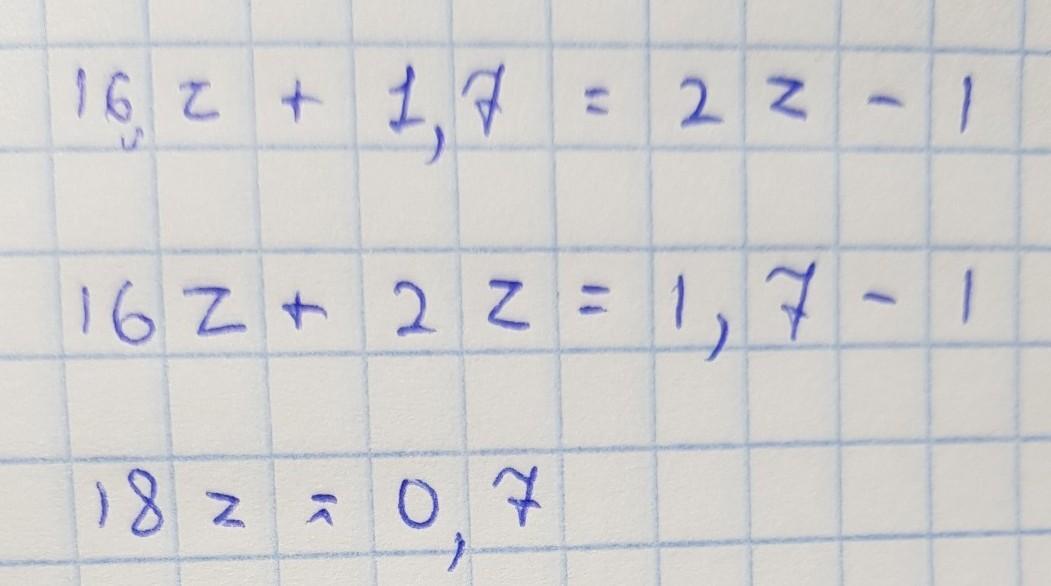 16z + 1,7 = 2z - 1
16z + 2z = 1,7 - 1
18z = 0,7